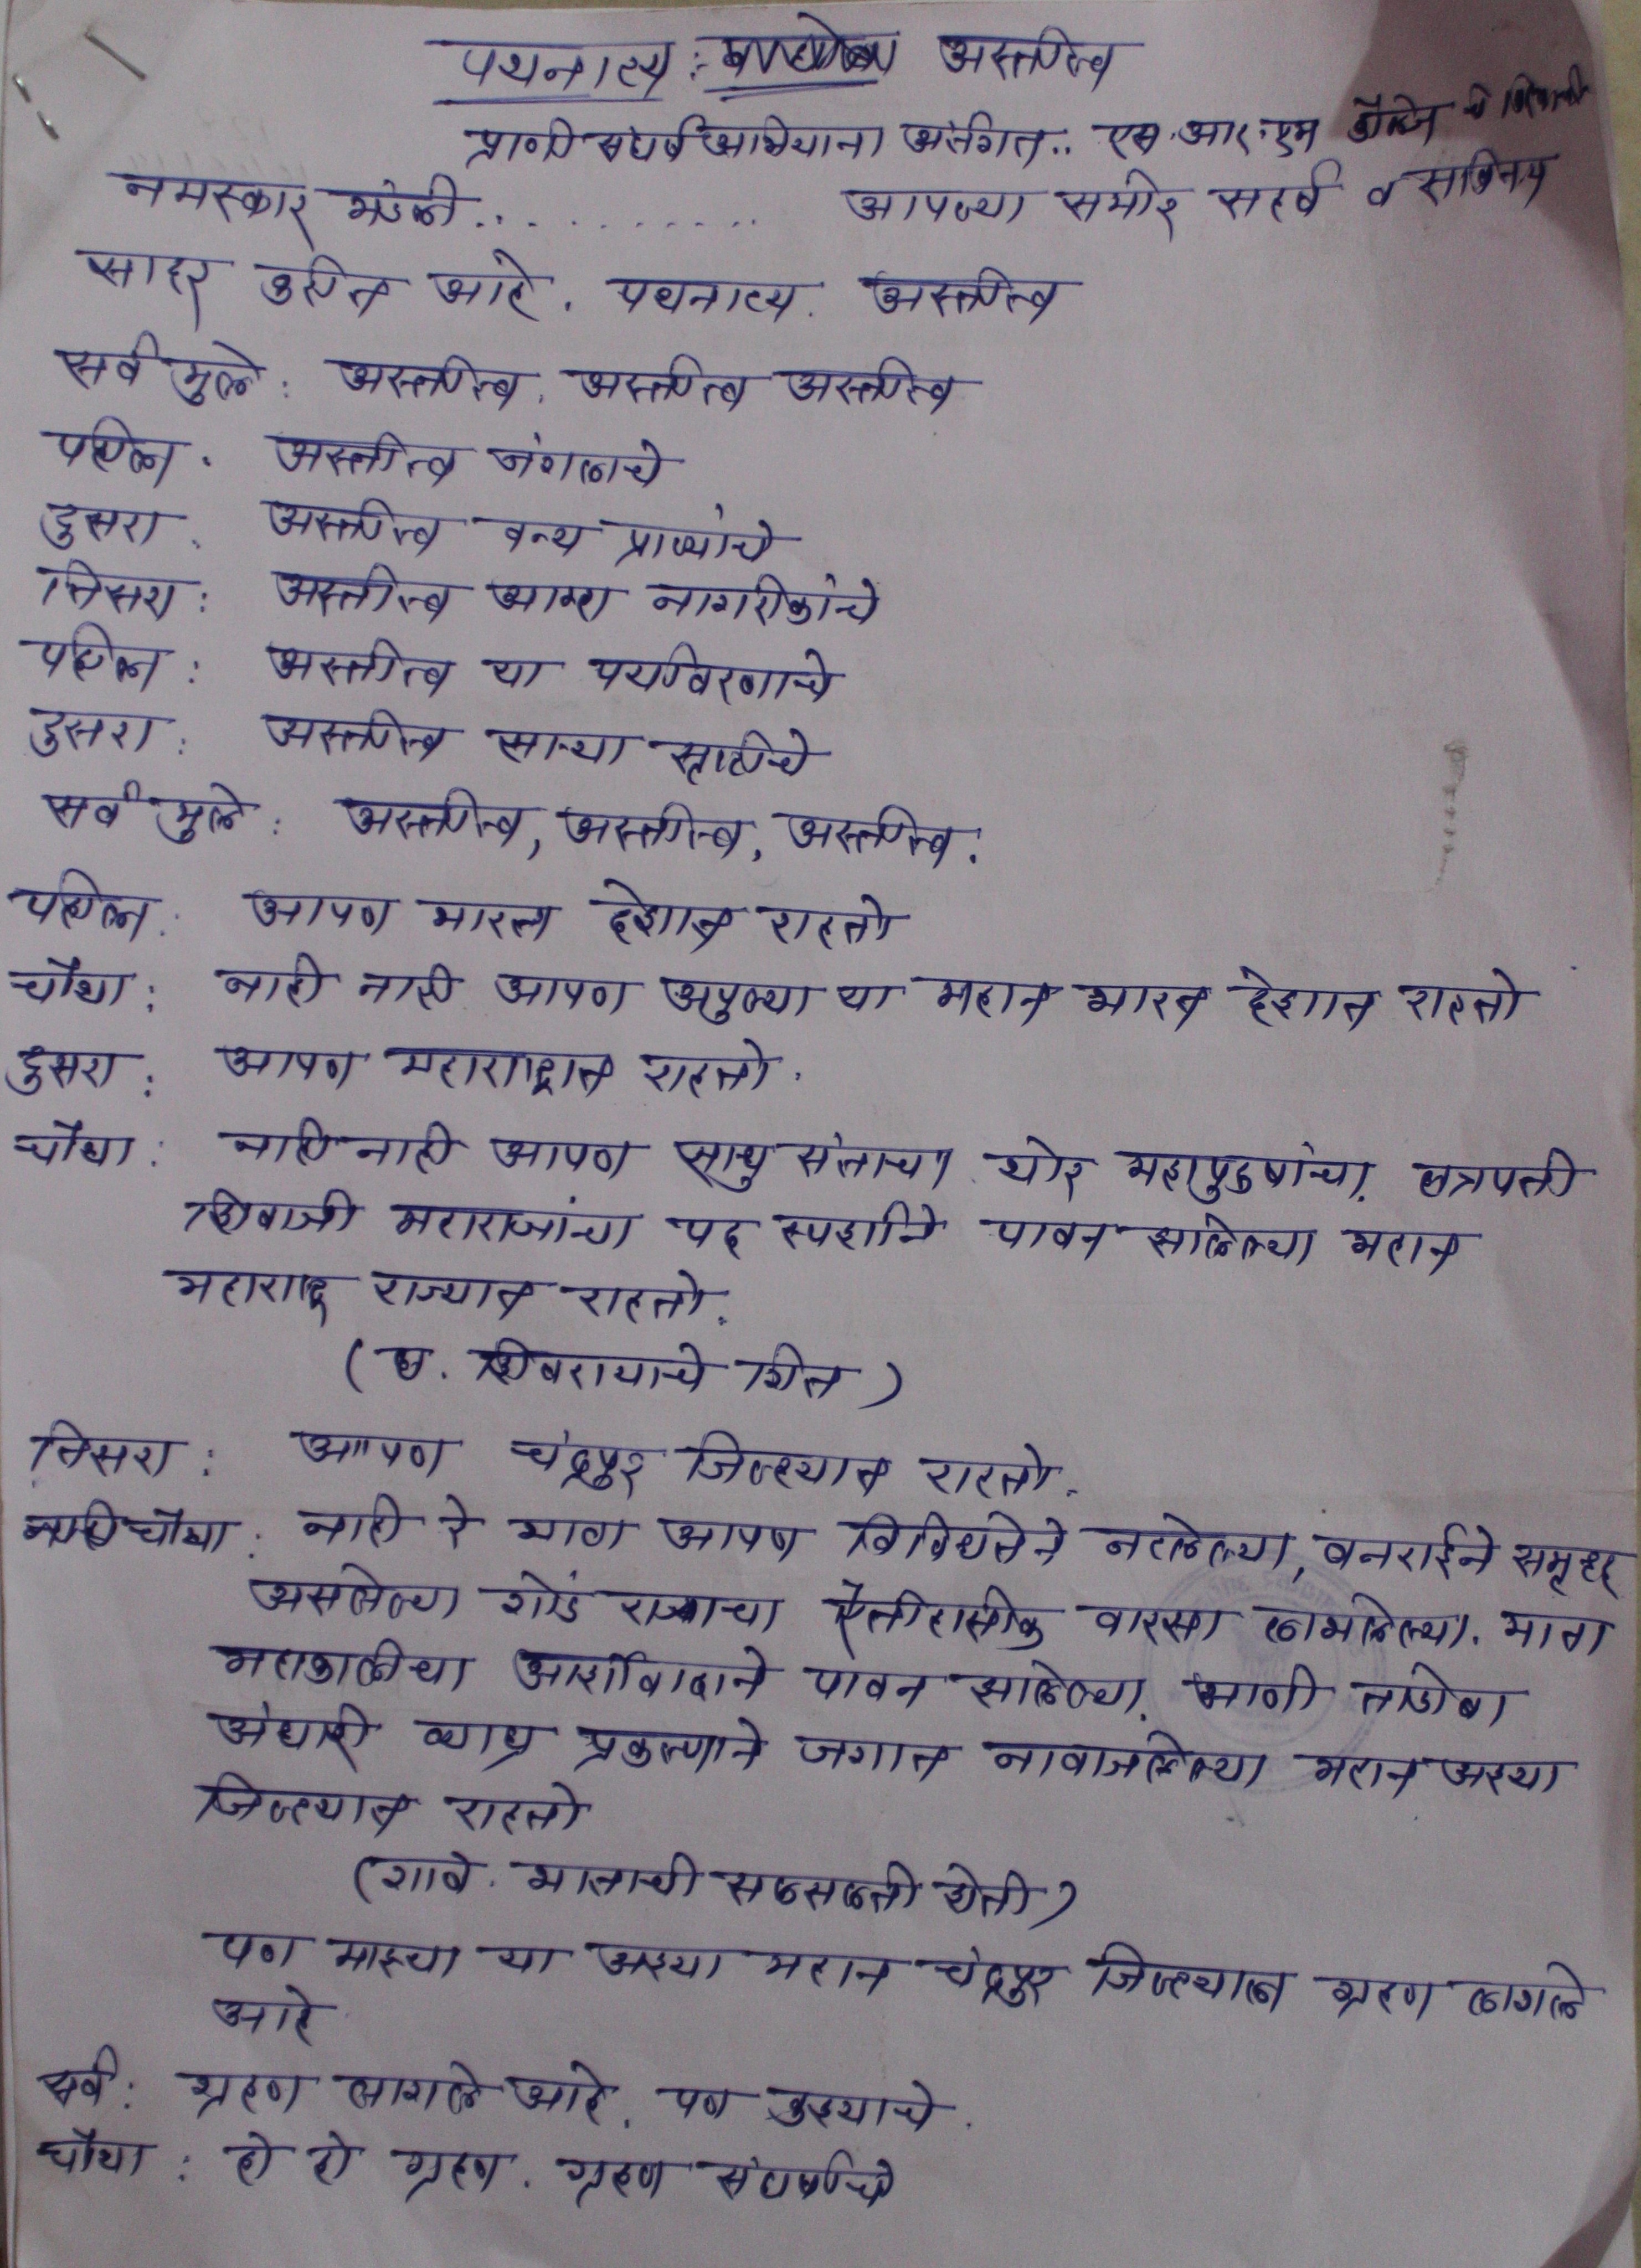 पथनाट्य : अस्तीत्व
प्राणी संघर्ष अभियाना अंर्तगत.. एस.आर.एम कॉलेज चे विद्यार्थी
नमस्कार मंडळी............. आपल्या समोर सहर्ष व सविनय
सादर करीत आहे. पथनाट्य. अस्तीत्व
सर्व मुले : अस्तीत्व. अस्तीत्व अस्तीत्व
पहीला. अस्तीत्व जंगलाचे
दुसरा. अस्तीत्व वन्य प्राण्यांचे
तिसरा : अस्तीत्व आम्हा नागरीकांचे
पहीला : अस्तीत्व या पर्यावरणाचे
दुसरा : अस्तीत्व साऱ्या सृष्टीचे
सर्व मुले : अस्तीत्व, अस्तीत्व, अस्तीत्व.
पहीला. आपण भारत देशात राहतो
चौथा : नाही नाही आपण आपुल्या या महान भारत देशात राहतो
दुसरा : आपण महाराष्ट्रात राहतो.
चौथा : नाही नाही आपण साधु संताचा थोर महापुरुषांचा. छत्रपती
शिवाजी महाराजांचा पद स्पर्शाने पावन झालेल्या महान
महाराष्ट्र राज्यात राहतो.
(छ. शिवरायाचे गित)
तिसरा : आपण चंद्रपुर जिल्ह्यात राहतो.
चौथा : नाही रे भावा आपण विविधतेने नटलेल्या, वनराईने समृद्ध
असलेल्या गोंड राजाचा ऐतीहासीक वारसा लाभलेल्या. माता
महाकालीचा आर्शावादाने पावन झालेल्या. आणी ताडोबा
अंधारी व्याघ्र प्रकल्पाने जगात नावाजलेल्या महान अश्या
जिल्ह्यात राहतो
(गावे. मातांची सळसळती शेती)
पण माझ्या या अश्या महान चंद्रपुर जिल्ह्याला ग्रहण लागले
आहे
सर्व : ग्रहण लागले आहे. पण कुश्याचे.
चौथा : हो हो ग्रहण. ग्रहण संघर्षाचे